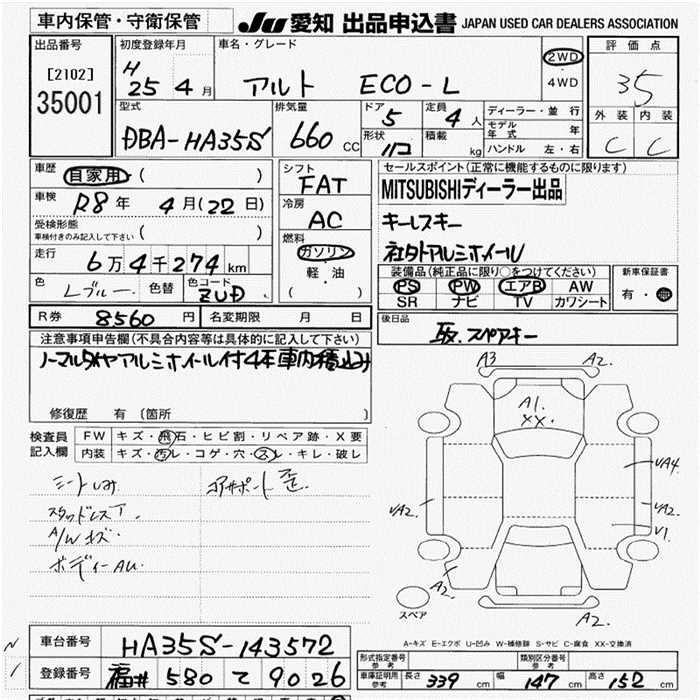 車内保管・守衛保管
JU 愛知 出品申込書 JAPAN USED CAR DEALERS ASSOCIATION
出品番号
[2102]
35001
初度登録年月
H
25 4 月
車名・グレード
アルト ECO-L
2WD
4WD
評価点
35
外装 内装
C C
型式
DBA-HA35S
排気量
660 CC
ドア
5
定員
4 人
形状
積載
kg
ディーラー・並行
モデル年式 年
ハンドル 左・右
車歴
自家用 ( )
車検
R8 年 4 月(22 日)
受検形態
車検付きのみ記入して下さい ( )
走行
6 万 4 千 274 km
色
Lブルー
色替
色コード
ZUD
シフト
FAT
冷房
AC
燃料
ガソリン
軽・油
( )
セールスポイント(正常に機能するものに限ります)
MITSUBISHIディーラー出品
キーレスキー
社外アルミホイール
装備品(純正品に限り○をつけてください)
PS PW エアB AW
SR ナビ TV カワシート
新車保証書
有・
R券 8560 円
名変期限 月 日
後日品
取、スペアキー
注意事項申告欄(不具合内容等は具体的に記入して下さい)
ノーマルタイヤアルミホイール付4本車内積込み
修復歴 有 (箇所 )
検査員
記入欄
FW キズ・飛石・ヒビ割・リペア跡・X要
内装 キズ・汚レ・コゲ・穴・スレ・キレ・破レ
シートしみ
コアサポート歪
スタッドレスT.
A/Wキズ.
ボディーAU.
A3 A2.
A1.
XX.
UA4.
UA2. UA2.
U1
A2.
A2.
スペア
A-キズ E-エクボ U-凹み W-補修跡 S-サビ C-腐食 XX-交換済
車台番号
HA35S-143572
登録番号
福井 580 て 9026
形式指定番号
参考
類別区分番号
参考
車庫証明用
参考
長さ 339 cm 幅 147 cm 高さ 152 cm